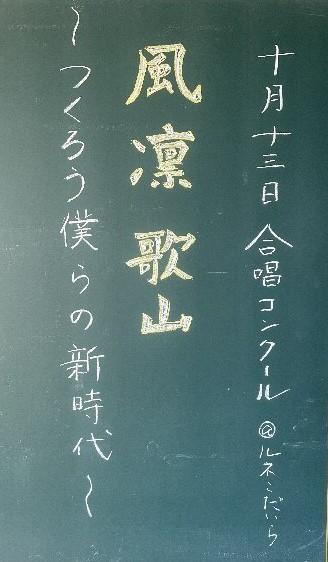 十月十三日 合唱コンクール @ルネこだいら
風凛歌山
~つくろう僕らの新時代~